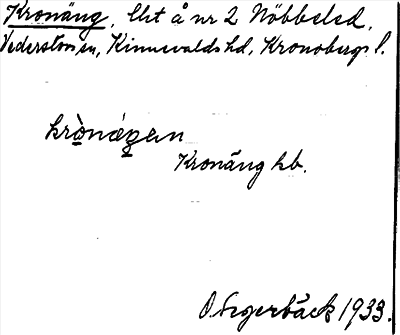 Kronäng, lht å nr 2 Nöbbeled,
Vederslöv sn, Kinnevalds hd, Kronobergs l.
krònǽŋen
Kronäng hb.
O Segerbäck 1933.